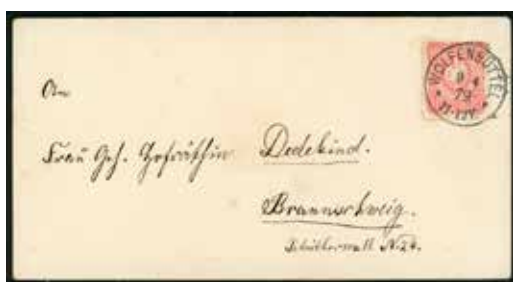 WOLFENBÜTTEL
9 4
79
11-12V.
An
Frau Geh. Hofräthin Dedekind.
Braunschweig.
N. 24.